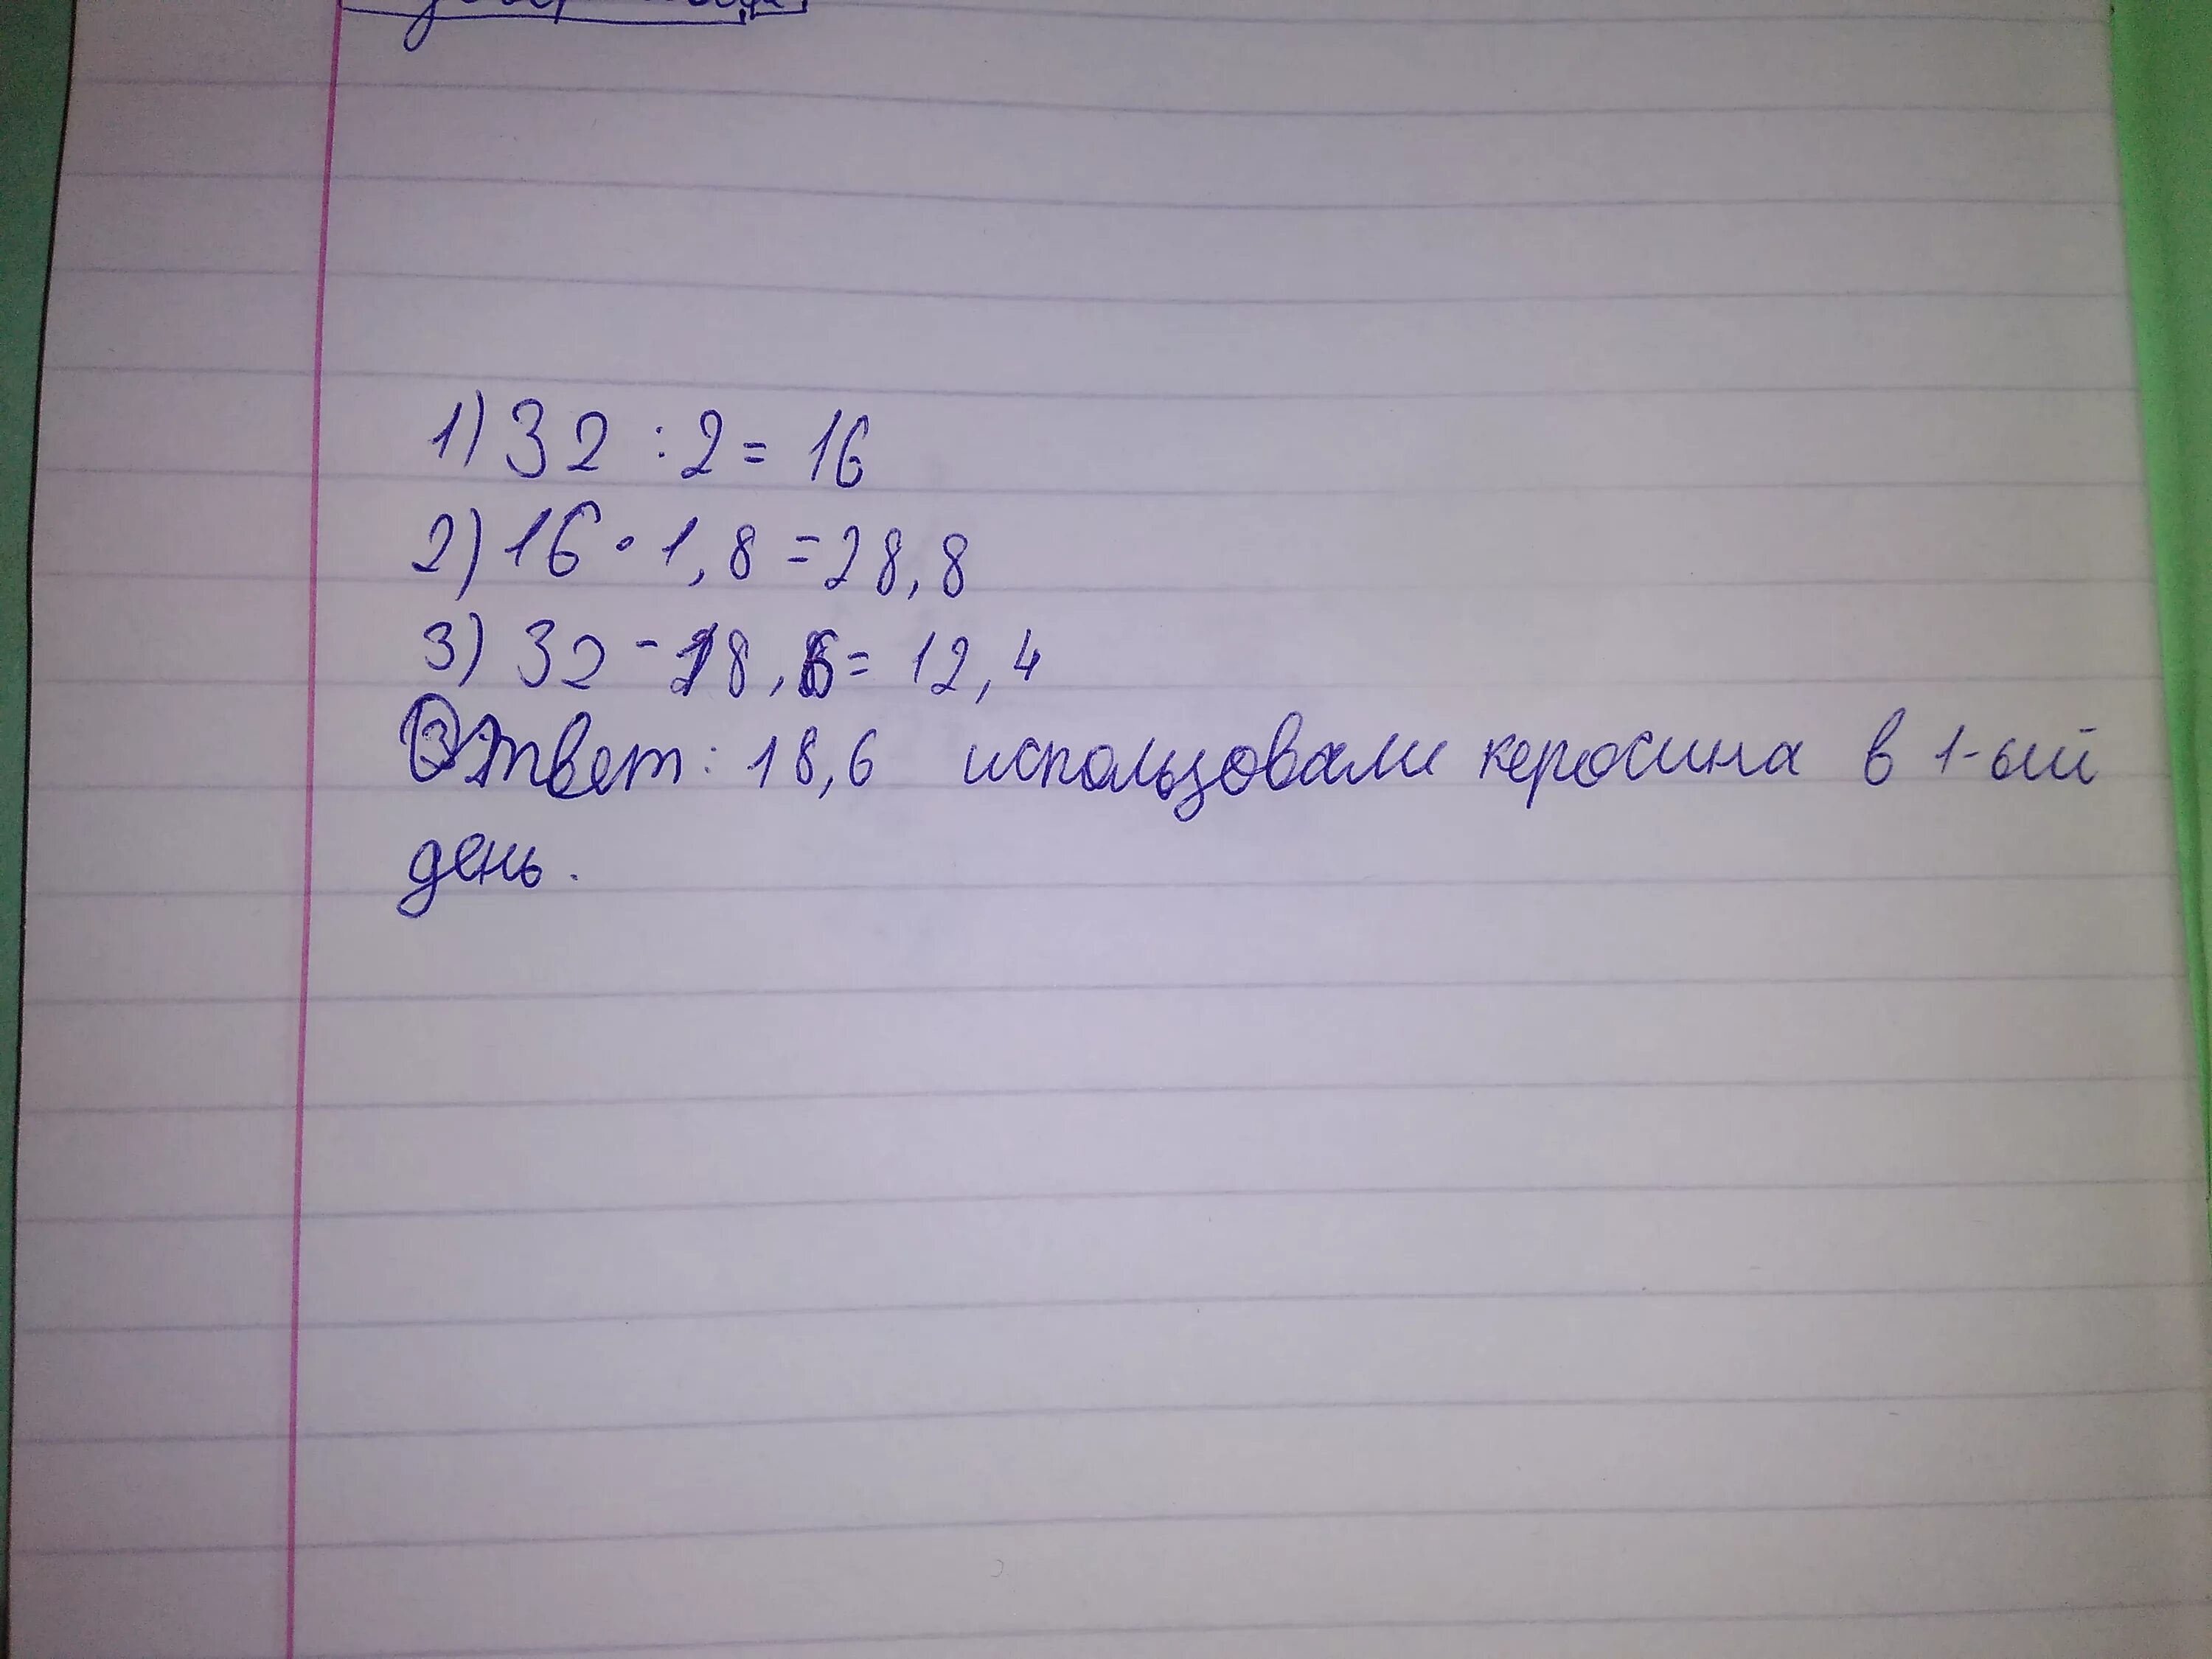 1) 32 : 2 = 16
2) 16 • 1,8 = 28,8
3) 32 - 18,6 = 12,4
Ответ: 18,6 использовали керосина в 1-ый
день.